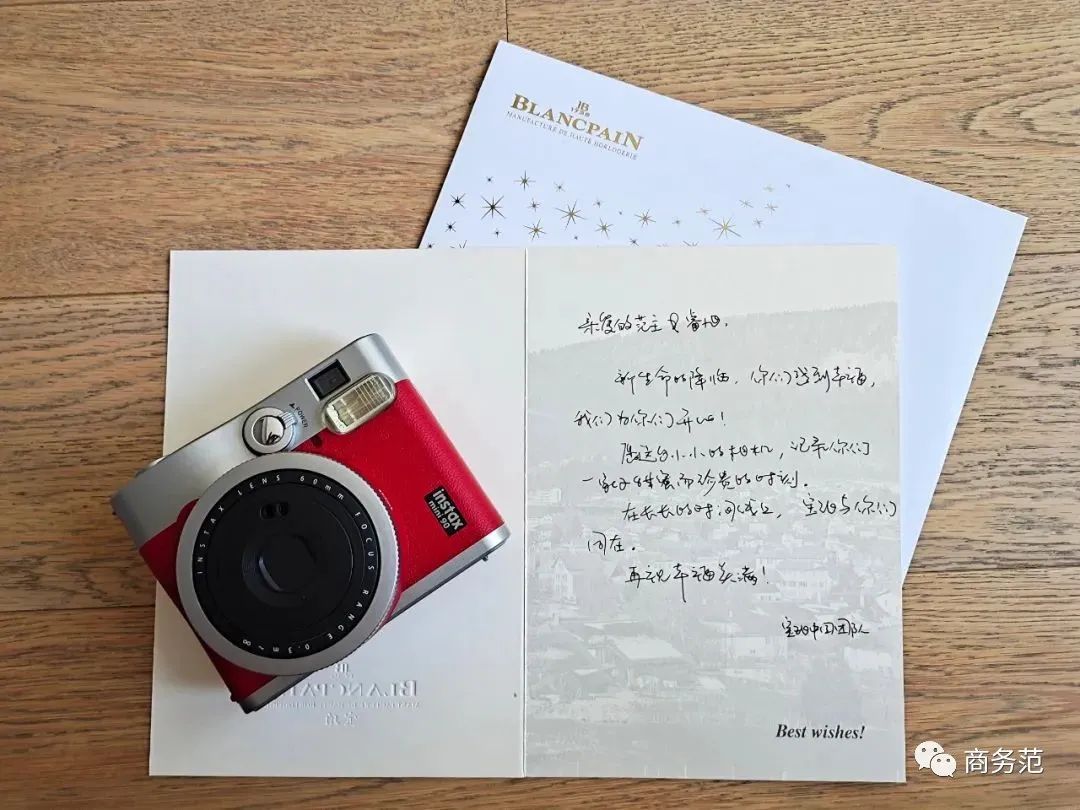 JB
1735
BLANCPAIN
MANUFACTURE DE HAUTE HORLOGERIE
亲爱的范主
新生命的降临，你们感到幸福，
我们为你们开心！
愿这台小小的相机，记录你们
一家子甜蜜而珍贵的时刻。
在长长的时间线上，宝珀与你们
同在。
再祝幸福美满！
宝珀中国团队
Best wishes!
POWER
instax
mini 90
INSTAX LENS 60mm FOCUS RANGE 0.3m~∞
JB
BLANCPAIN
宝珀
商务范